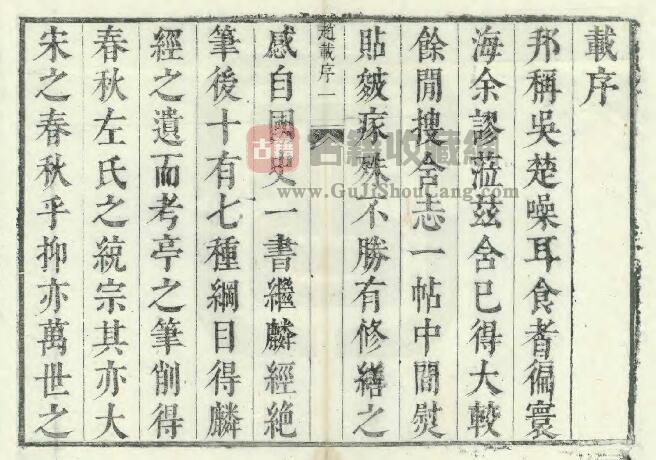 載序
邦稱吳楚噪耳食者徧寰
海余謬蒞茲含已得大較
餘閒搜含志一帖中間熨
貼皴瘃殊不勝有修繕之
趙載序一
感自國史一書繼麟經絶
筆後十有七種綱目得麟
經之遺而考亭之筆削得
春秋左氏之統宗其亦大
宋之春秋乎抑亦萬世之
古籍
古籍收藏網
www.GuJiShouCang.com